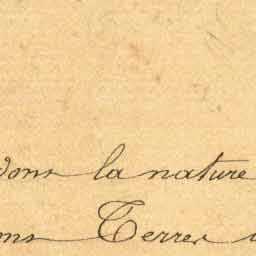 dons la nature
ns Terres